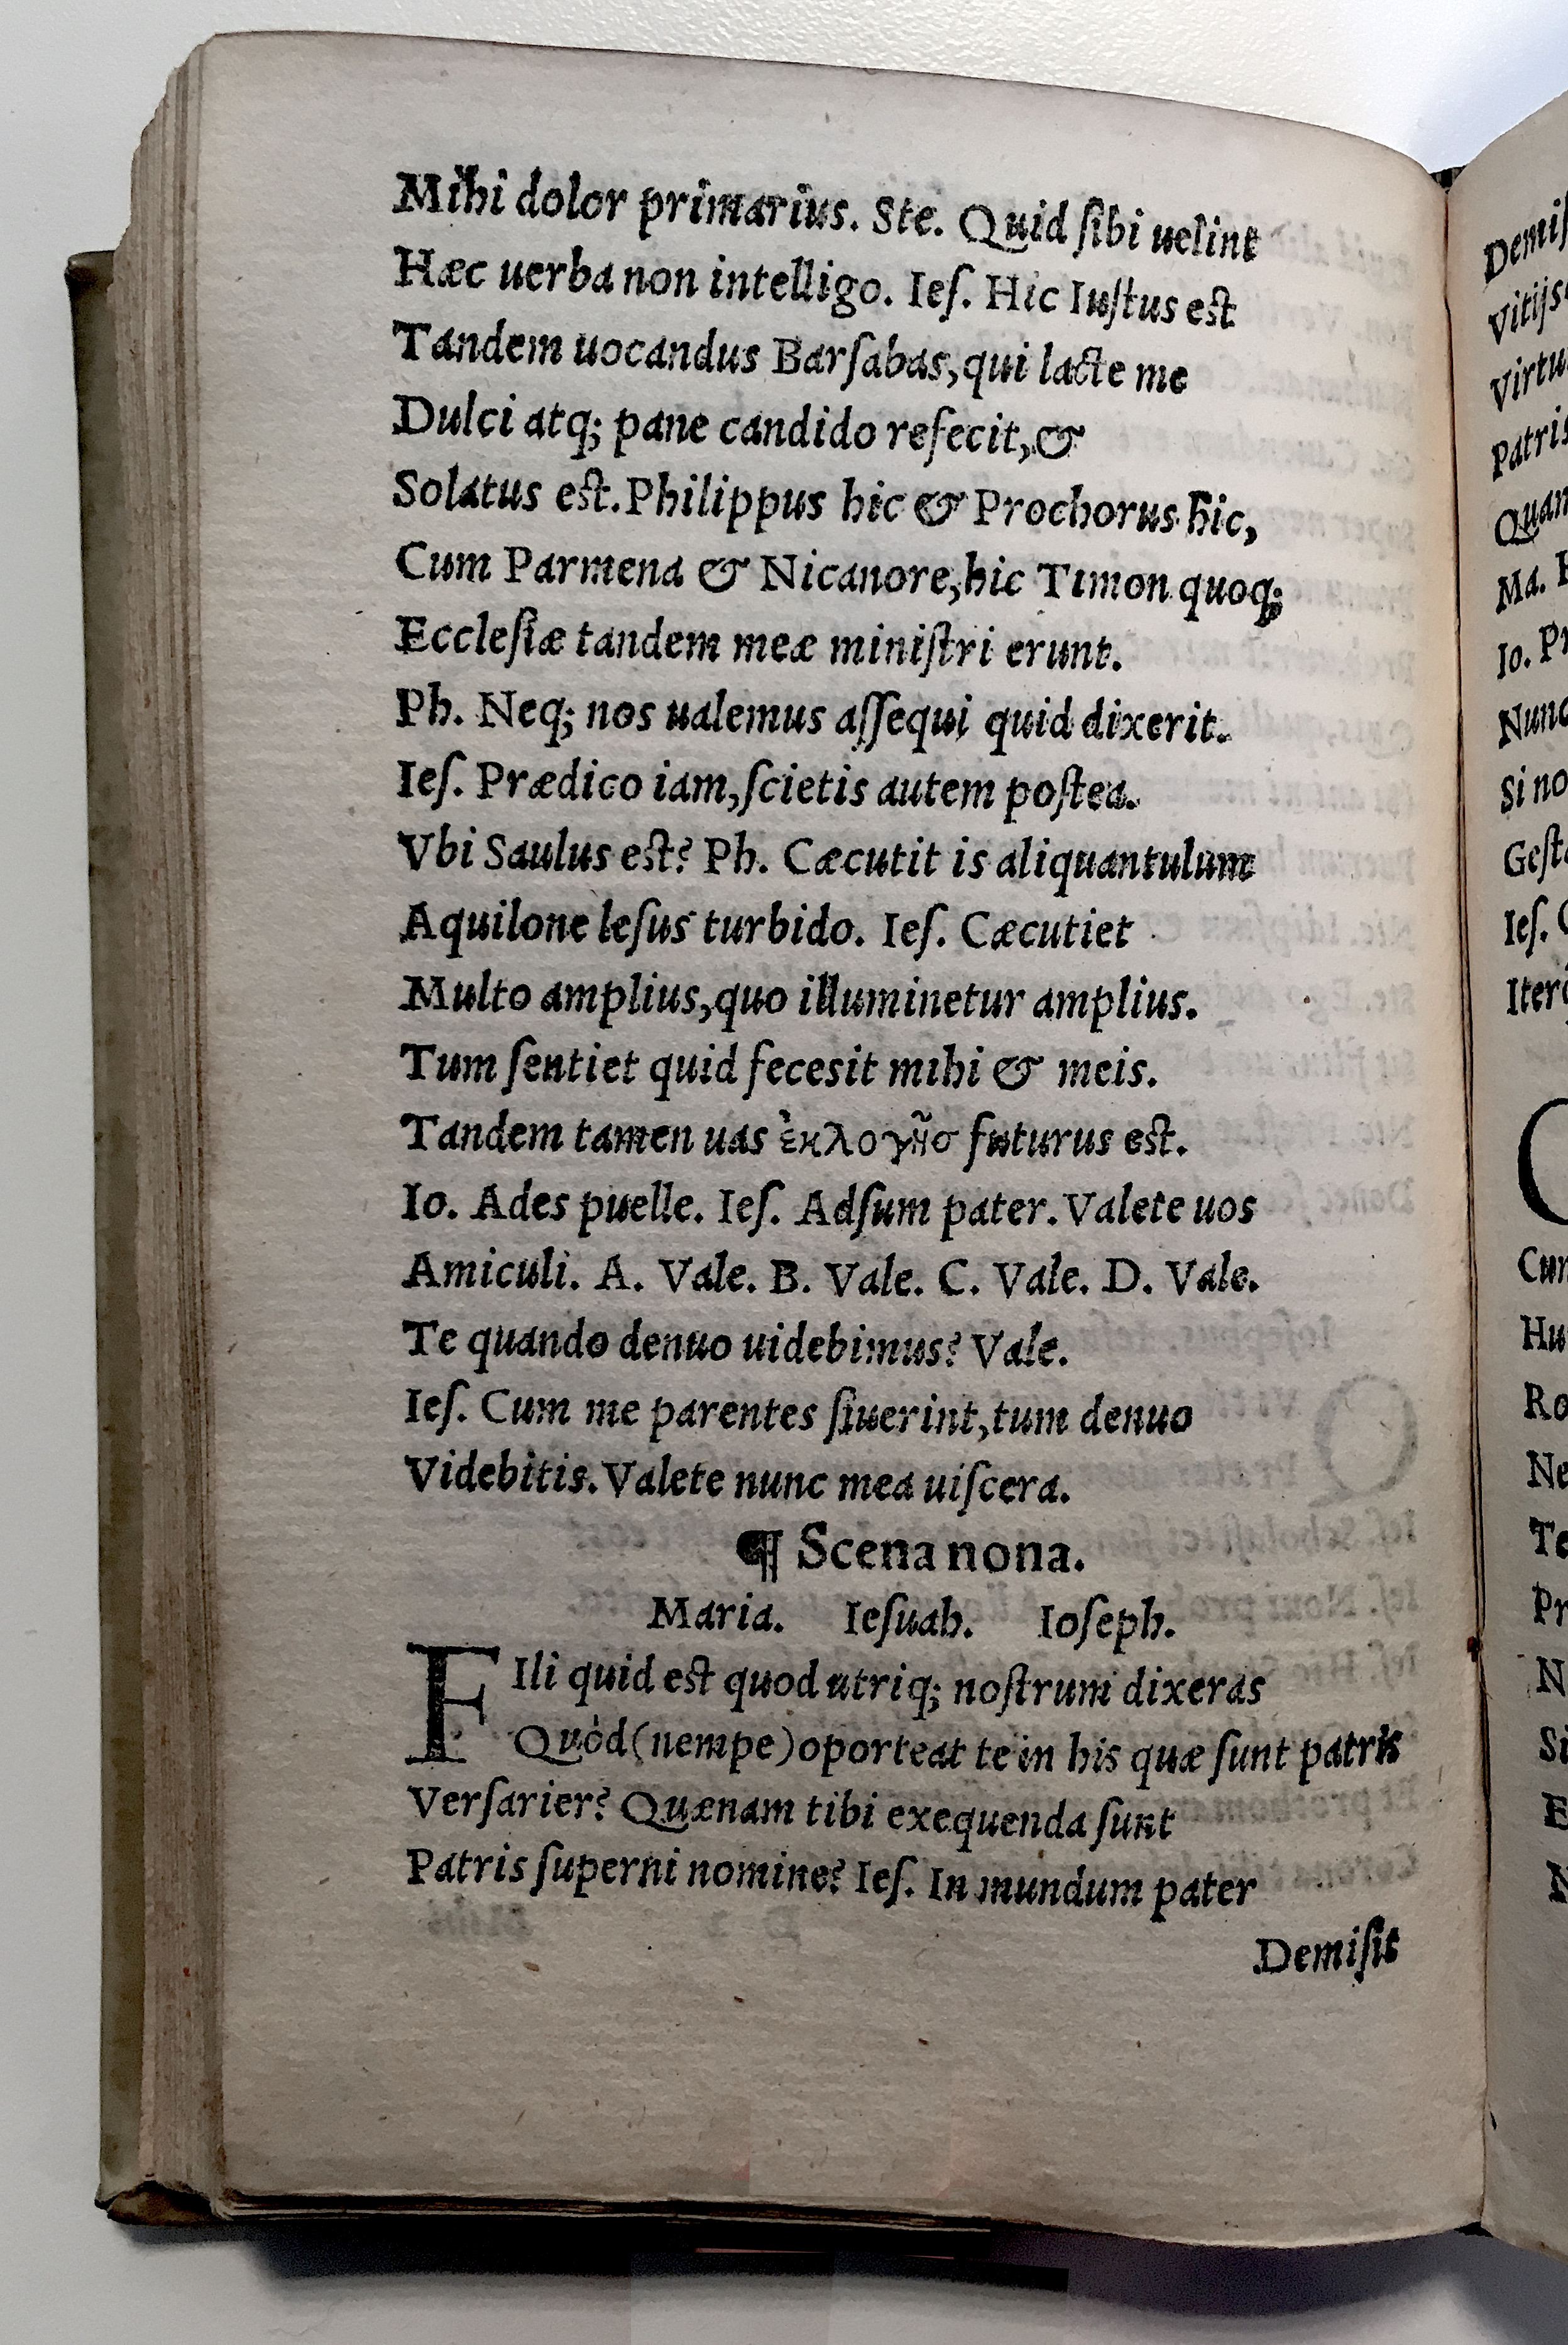 Mihi dolor primarius. Ste. Quid ſibi uelint
Hæc uerba non intelligo. Ieſ. Hic Iuſtus eſt
Tandem uocandus Barſabas, qui lacte me
Dulci atq; pane candido refecit, &
Solatus eſt. Philippus hic & Prochorus hic,
Cum Parmena & Nicanore, hic Timon quoq;
Eccleſiæ tandem meæ miniſtri erunt.
Ph. Neq; nos ualemus aſſequi quid dixerit.
Ieſ. Prædico iam, ſcietis autem poſtea.
Vbi Saulus eſt? Ph. Cæcutit is aliquantulum
Aquilone leſus turbido. Ieſ. Cæcutiet
Multo amplius, quo illuminetur amplius.
Tum ſentiet quid feceſit mihi & meis.
Tandem tamen uas ἐκλογῆσ futurus eſt.
Io. Ades puelle. Ieſ. Adſum pater. Valete uos
Amiculi. A. Vale. B. Vale. C. Vale. D. Vale.
Te quando denuo uidebimus? Vale.
Ieſ. Cum me parentes ſiuerint, tum denuo
Videbitis. Valete nunc mea uiſcera.
¶ Scena nona.
Maria. Ieſuah. Ioſeph.
FIli quid eſt quod utriq; noſtrum dixeras
Quòd (nempe) oporteat te in his quæ ſunt patris
Verſarier? Quænam tibi exequenda ſunt
Patris ſuperni nomine? Ieſ. In mundum pater
Demiſit
Vitijs
Patris
Ma.
Io.
Si no
Ieſ.